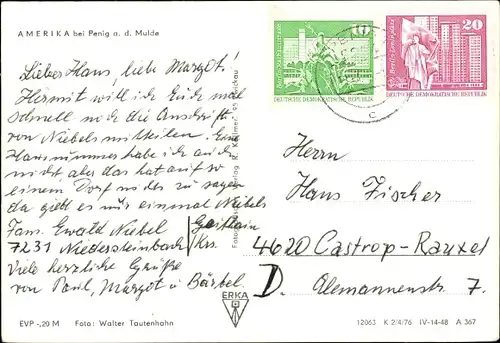 AMERIKA bei Penig a. d. Mulde
Lieber Hans, liebe Margot!
Hiermit will ich Euch mal
schnell noch die Anschrift
von Niebels mitteilen. Eine
Hausnummer habe ich auch
nicht aber das hat auf so
einem Dorf nichts zu sagen
da gibt es nur einmal Niebels
Fam. Ewald Niebel
7231 Niedersteinbach Geithain Krs.
Viele herzliche Grüße
von Paul, Margot u Bärbel.
EVP -,20 M Foto: Walter Tautenhahn
ERKA
10
DEUTSCHE DEMOKRATISCHE REPUBLIK
20
DEUTSCHE DEMOKRATISCHE REPUBLIK
c
Herrn
Hans Fischer
4620 Castrop-Rauxel
D. Alemannenstr 7.
12063 K 2/4/76 IV-14-48 A 367